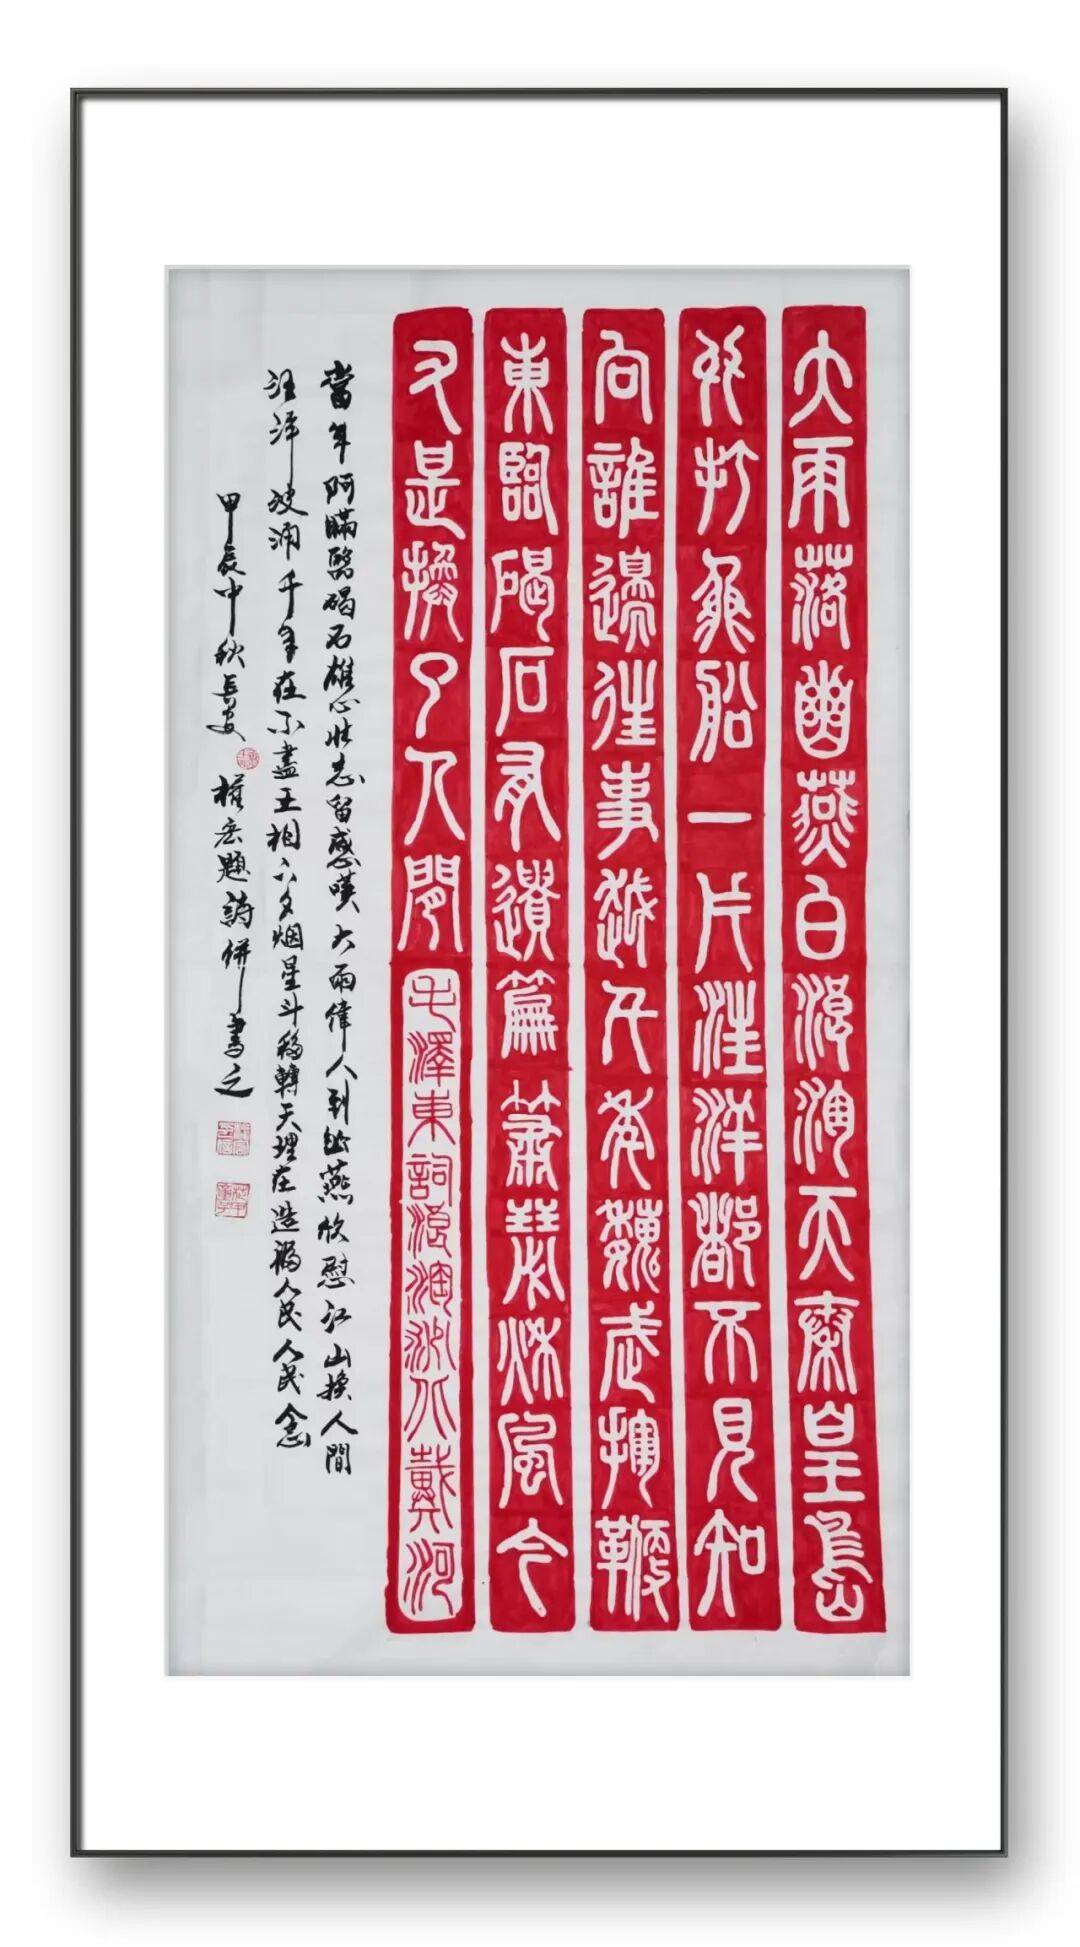 大雨落幽燕白浪滔天秦皇島
外打魚船一片汪洋都不見知
向誰邊往事越千年魏武揮鞭
東臨碣石有遺篇蕭瑟秋風今
又是換了人間
毛澤東詞浪淘沙北戴河
當年阿瞞臨碣石雄心壯志留感嘆大雨偉人到幽燕欣慰江山換人間
汪洋波涌千年在不盡王相夕烟星斗移轉天理在造福人民人民念
甲辰中秋長安權宏題詩併書之